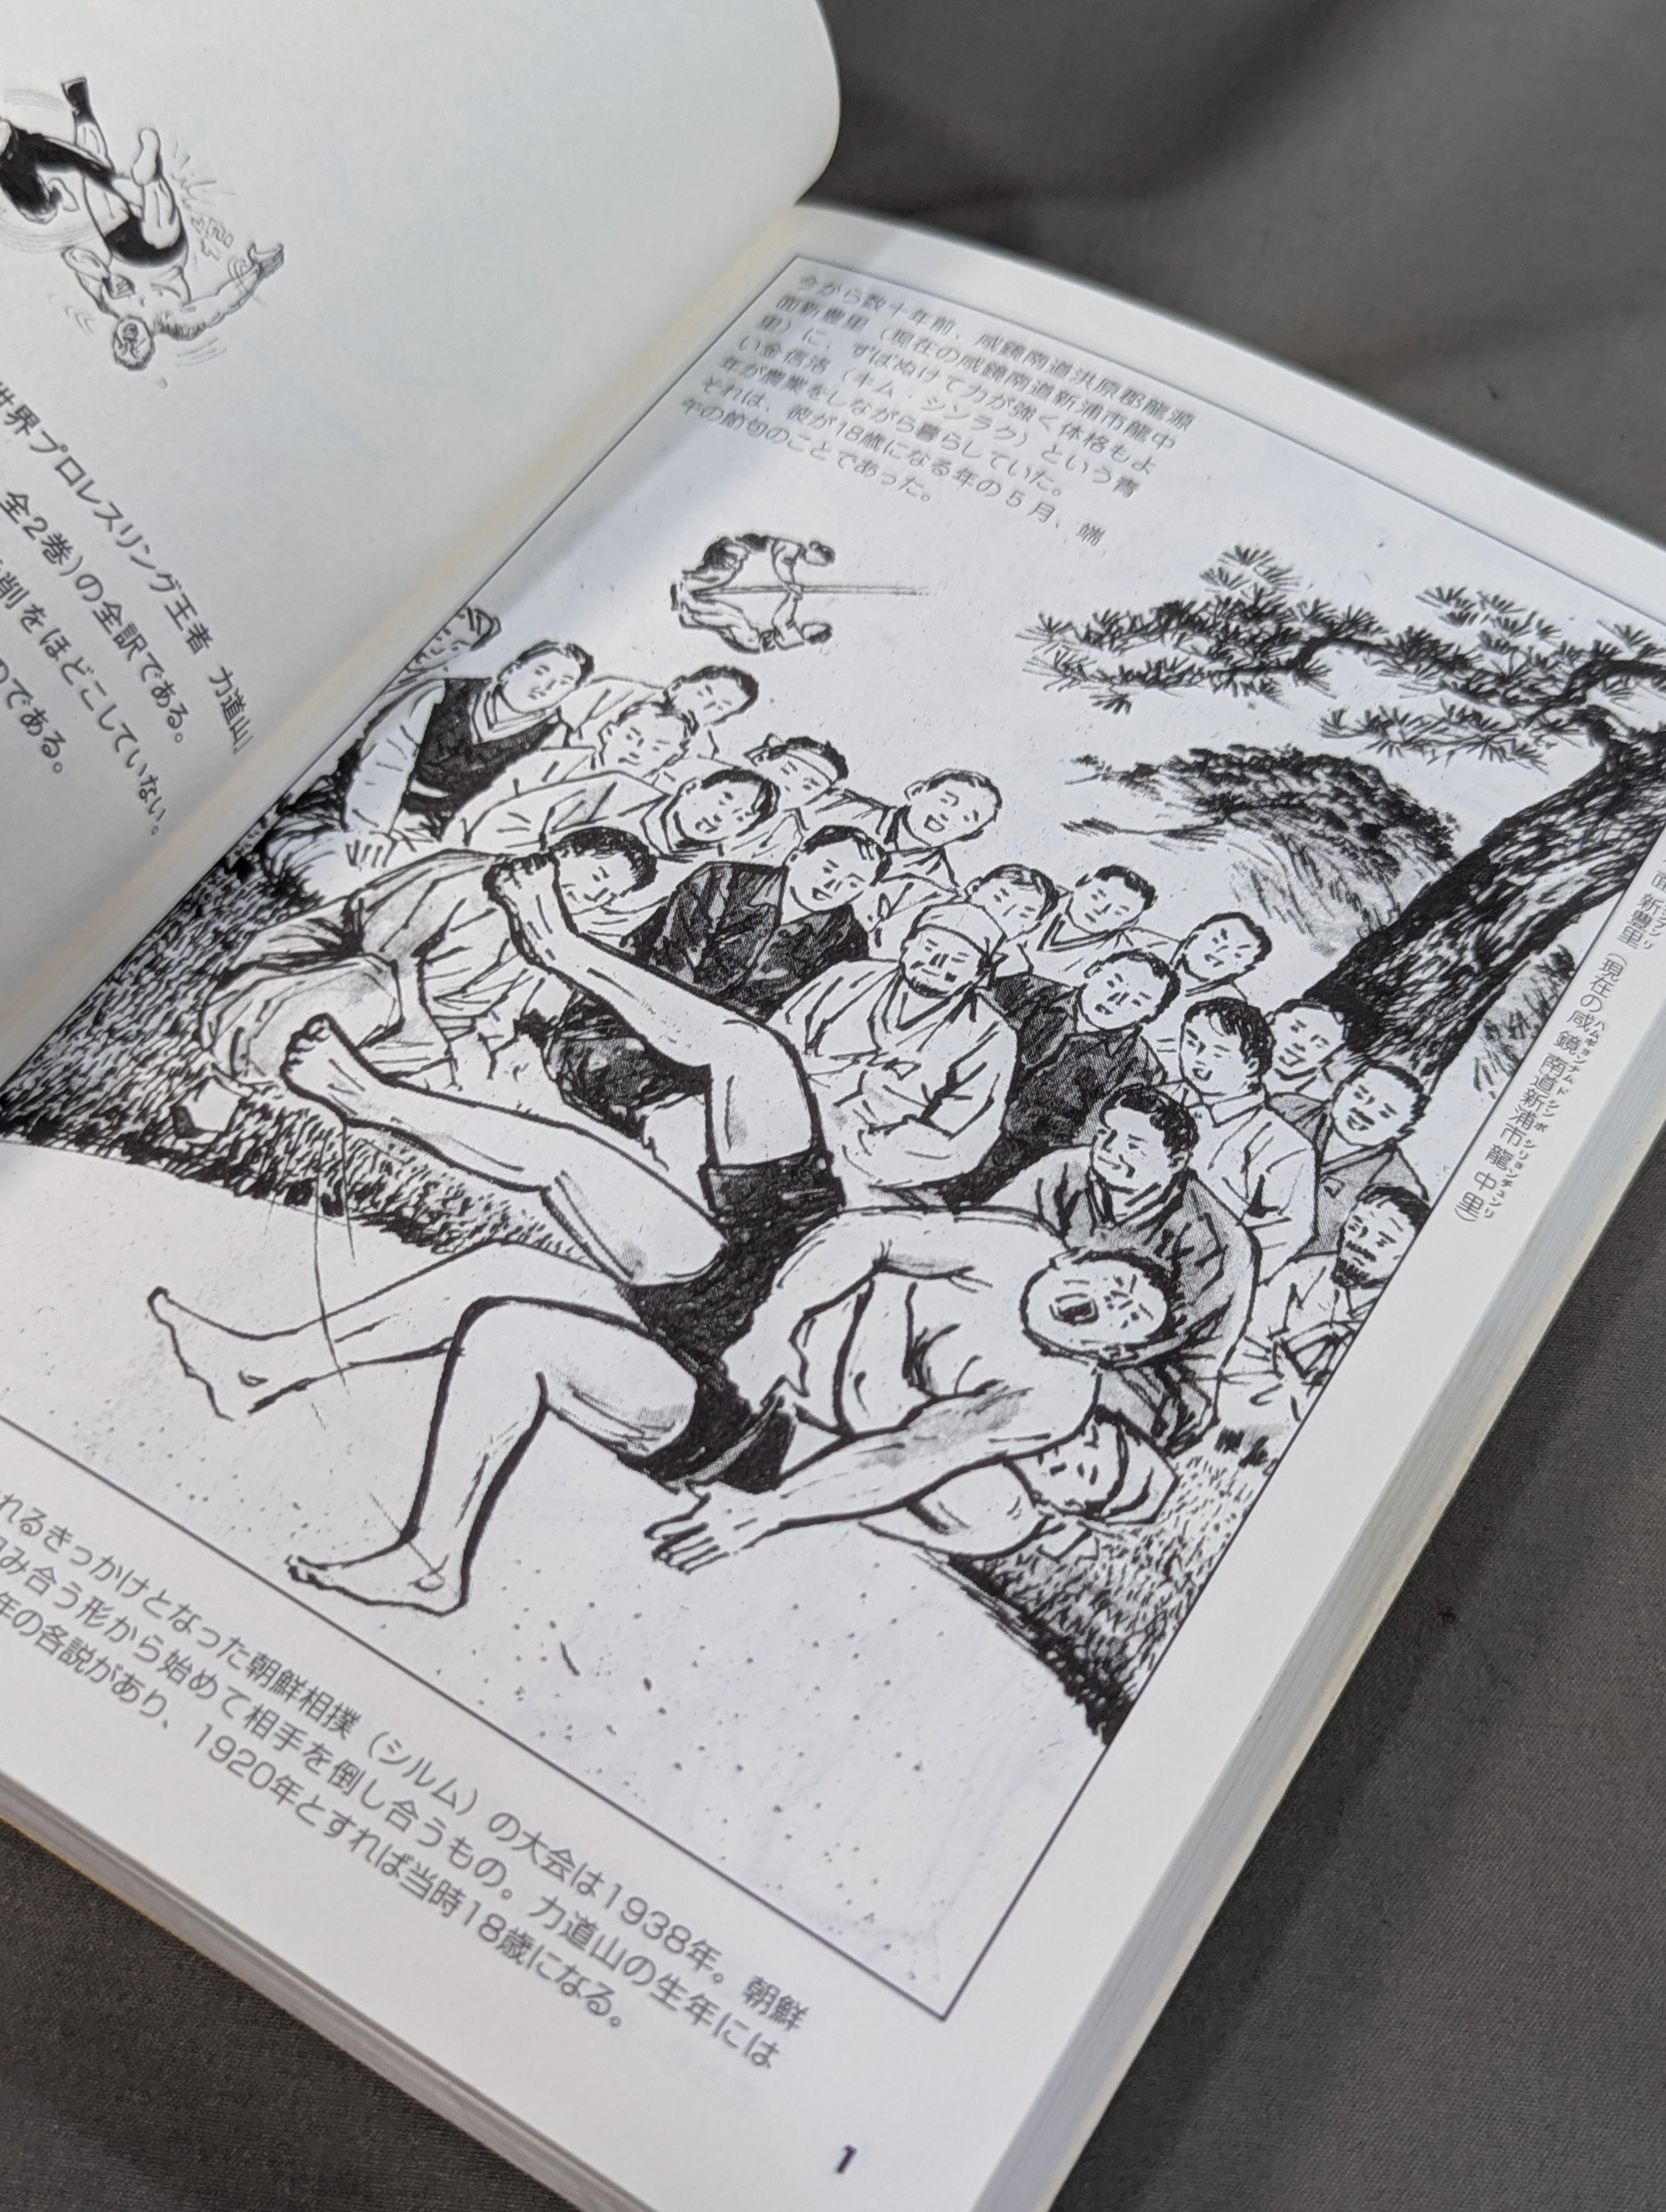 世界プロレスリング王者 力道山」
全2巻)の全訳である。
削をほどこしていない。
のである。
今から数十年前、咸鏡南道洪原郡龍源
面新豊里(現在の咸鏡南道新浦市龍中
里)に、ずばぬけて力が強く体格もよ
い金信洛(キム・シンラク)という青
年が農業をしながら暮らしていた。
それは、彼が18歳になる年の5月、端
午の節句のことであった。
面新豊里(現在の咸鏡南道新浦市龍中里)
れるきっかけとなった朝鮮相撲(シルム)の大会は1938年。朝鮮
み合う形から始めて相手を倒し合うもの。力道山の生年には
年の各説があり、1920年とすれば当時18歳になる。
1